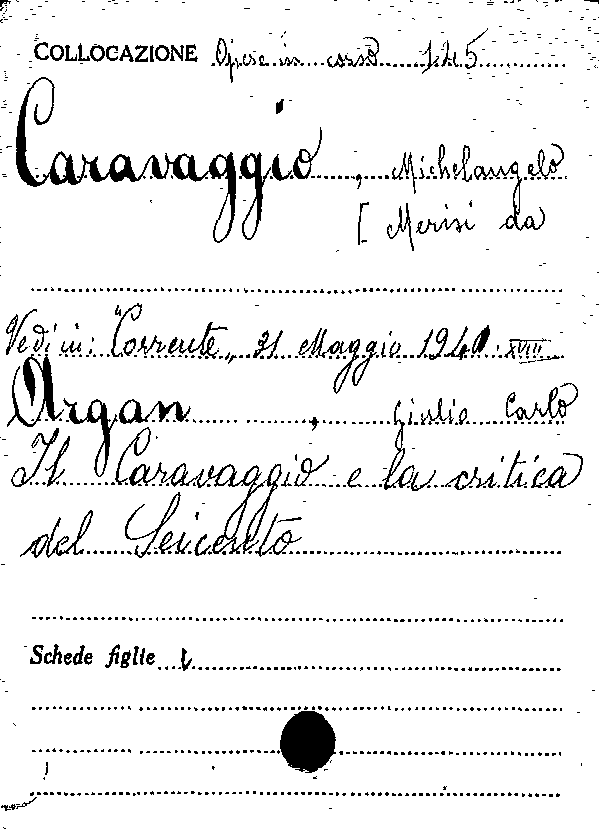 COLLOCAZIONE Opere in corso 145
Caravaggio, Michelangelo
[Merisi da
Vedi in: "Corrente„ 31 Maggio 1940. XVIII
Argan, Giulio Carlo
Il Caravaggio e la critica
del Seicento
Schede figlie 1